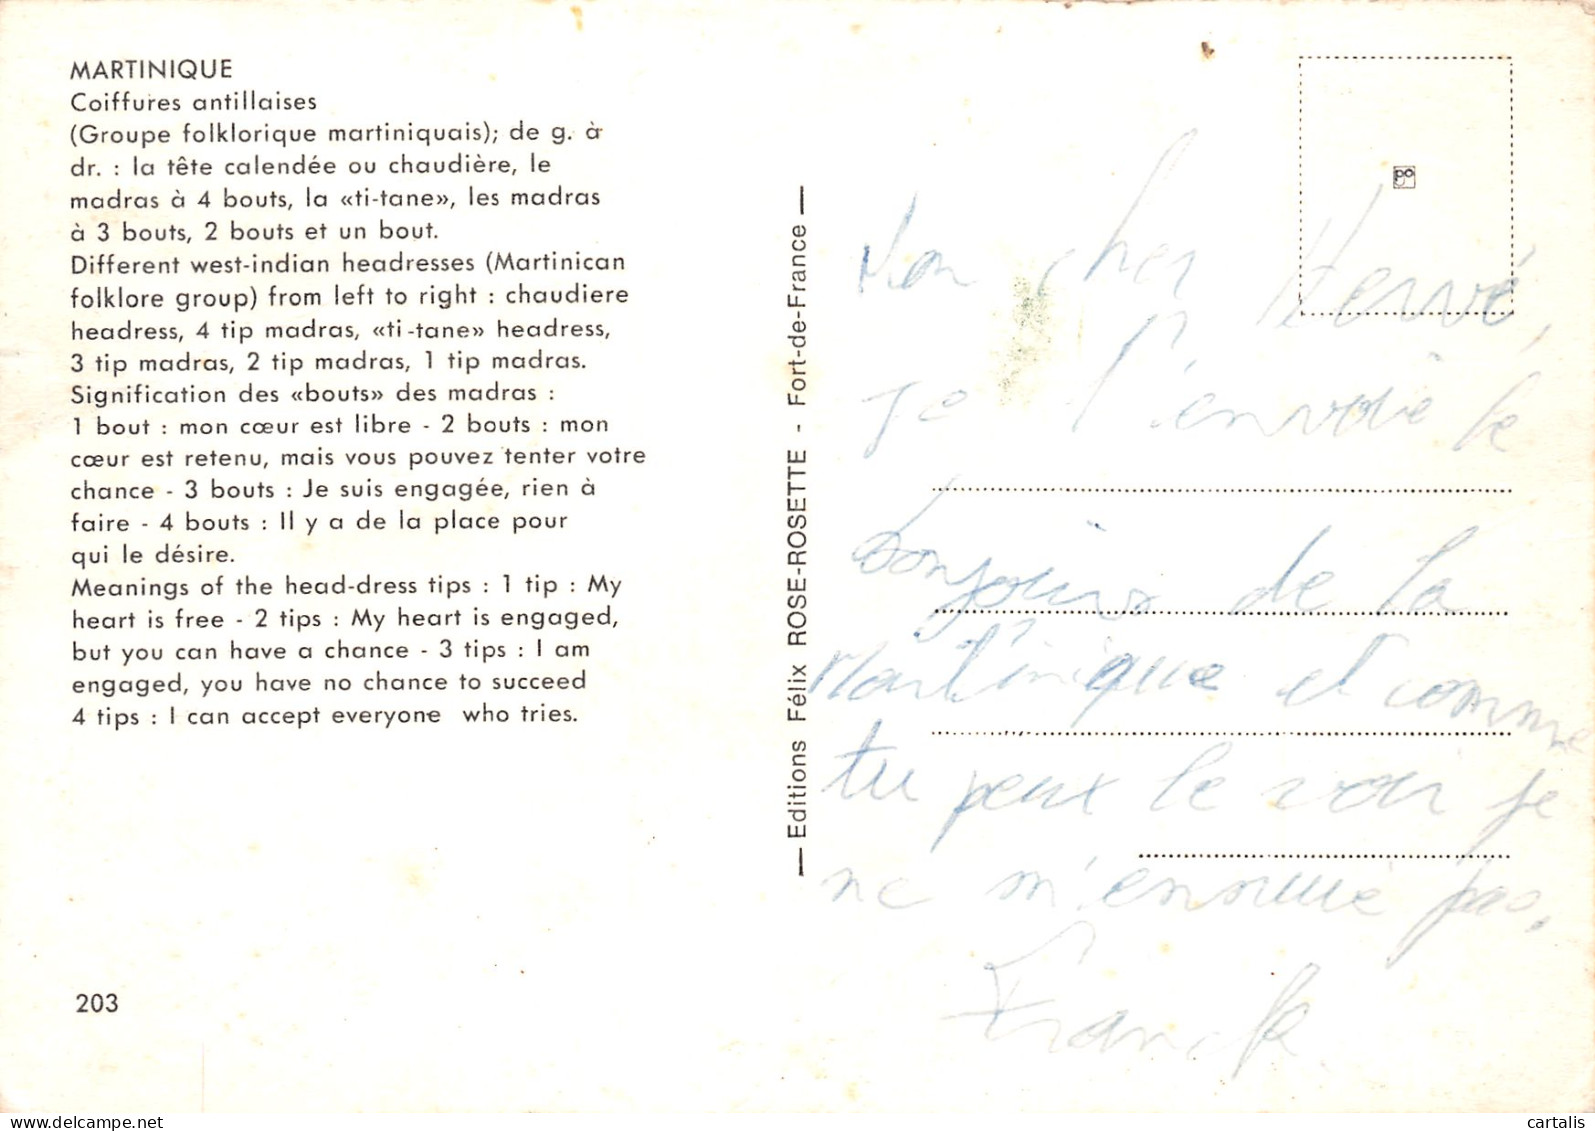 MARTINIQUE
Coiffures antillaises
(Groupe folklorique martiniquais); de g. à
dr. : la tête calendée ou chaudière, le
madras à 4 bouts, la «ti-tane», les madras
à 3 bouts, 2 bouts et un bout.
Different west-indian headresses (Martinican
folklore group) from left to right : chaudiere
headress, 4 tip madras, «ti-tane» headress,
3 tip madras, 2 tip madras, 1 tip madras.
Signification des «bouts» des madras :
1 bout : mon cœur est libre - 2 bouts : mon
cœur est retenu, mais vous pouvez tenter votre
chance - 3 bouts : Je suis engagée, rien à
faire - 4 bouts : Il y a de la place pour
qui le désire.
Meanings of the head-dress tips : 1 tip : My
heart is free - 2 tips : My heart is engaged,
but you can have a chance - 3 tips : I am
engaged, you have no chance to succeed
4 tips : I can accept everyone who tries.
203
— Editions Félix ROSE-ROSETTE - Fort-de-France —
Mon cher Hervé,
je t'envoie le
bonjour de la
Martinique et comme
tu peux le voir je
ne m'ennuie pas.
Franck
cartalis
www.delcampe.net